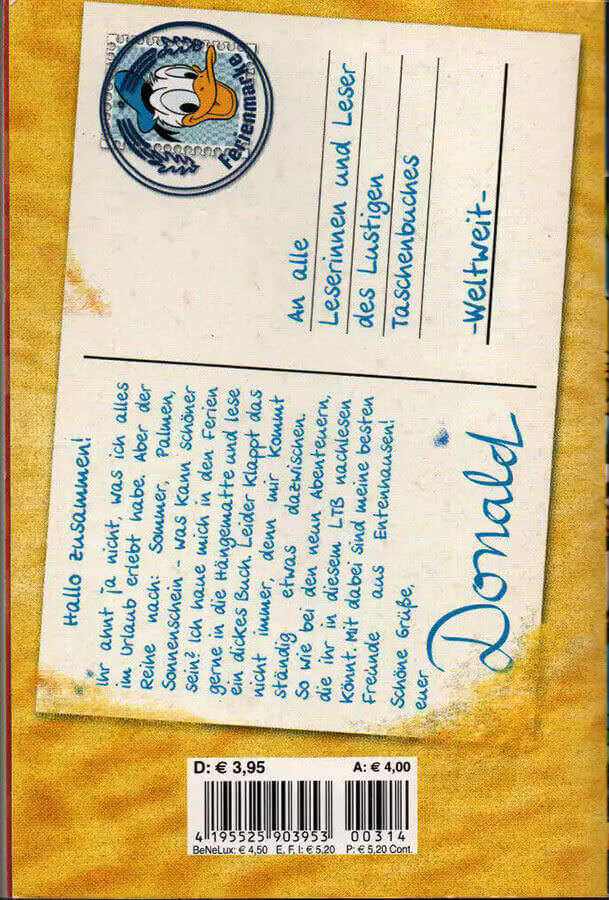 Hallo zusammen!
Ihr ahnt ja nicht, was ich alles
im Urlaub erlebt habe. Aber der
Reihe nach: Sommer, Palmen,
Sonnenschein - was kann schöner
sein? Ich haue mich in den Ferien
gerne in die Hängematte und lese
ein dickes Buch. Leider klappt das
nicht immer, denn mir kommt
ständig etwas dazwischen.
So wie bei den neun Abenteuern,
die ihr in diesem LTB nachlesen
könnt. Mit dabei sind meine besten
Freunde aus Entenhausen!
Schöne Grüße,
euer
Donald
Ferienmarke
An alle
Leserinnen und Leser
des Lustigen
Taschenbuches
-Weltweit-
D: € 3,95 A: € 4,00
4 195525 903953 00314
BeNeLux: € 4,50 E, F, I: € 5,20 P: € 5,20 Cont.